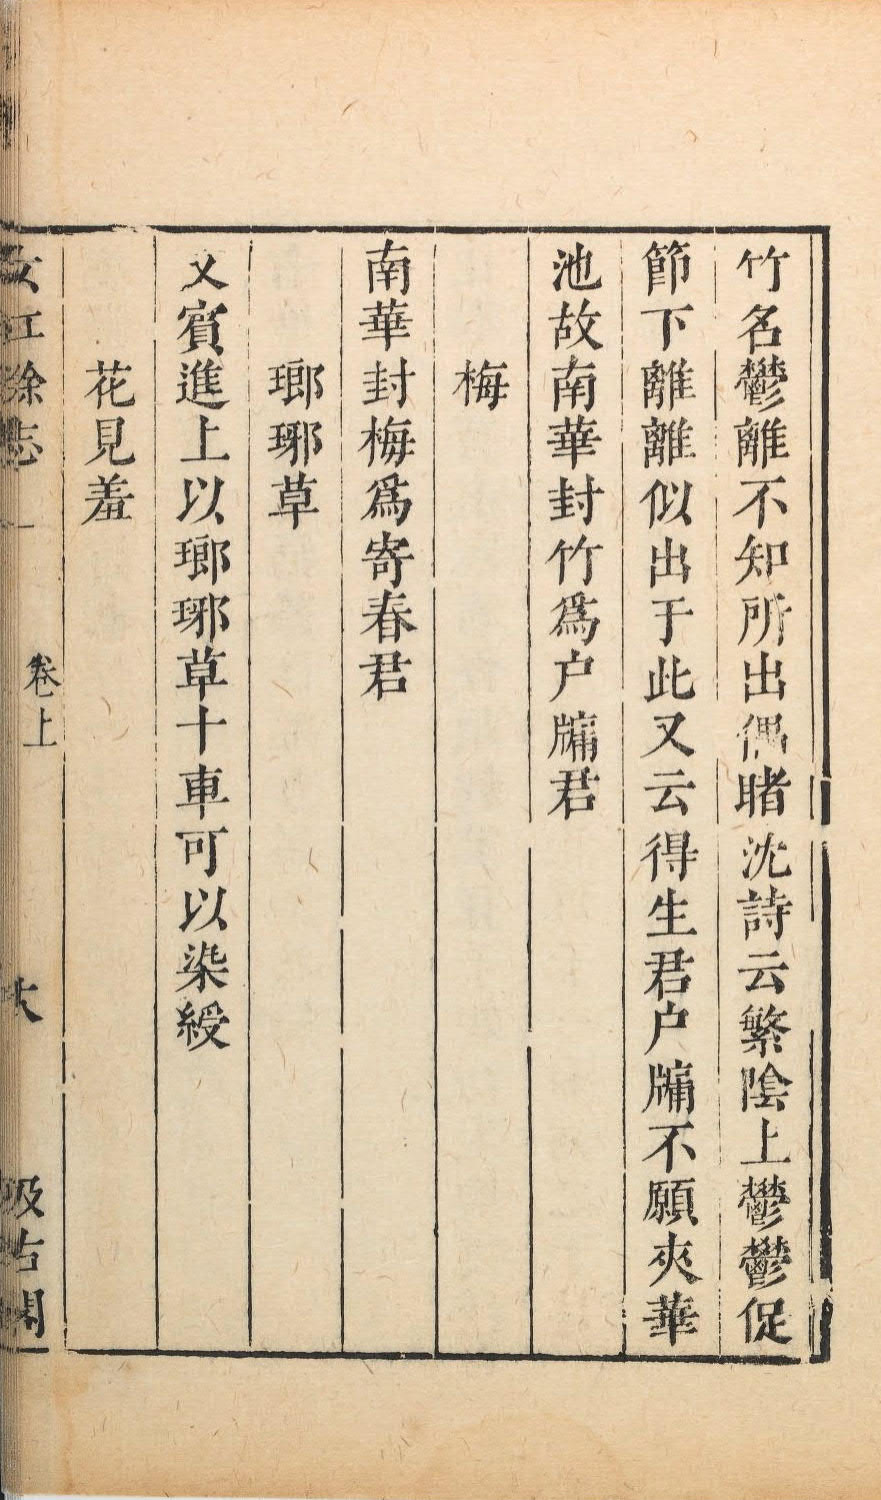 竹名鬱離不知所出偶睹沈詩云繁陰上鬱鬱促
節下離離似出于此又云得生君户牗不願夾華
池故南華封竹爲户牗君
梅
南華封梅爲寄春君
瑯琊草
文賓進上以瑯琊草十車可以染綬
花見羞
卷上